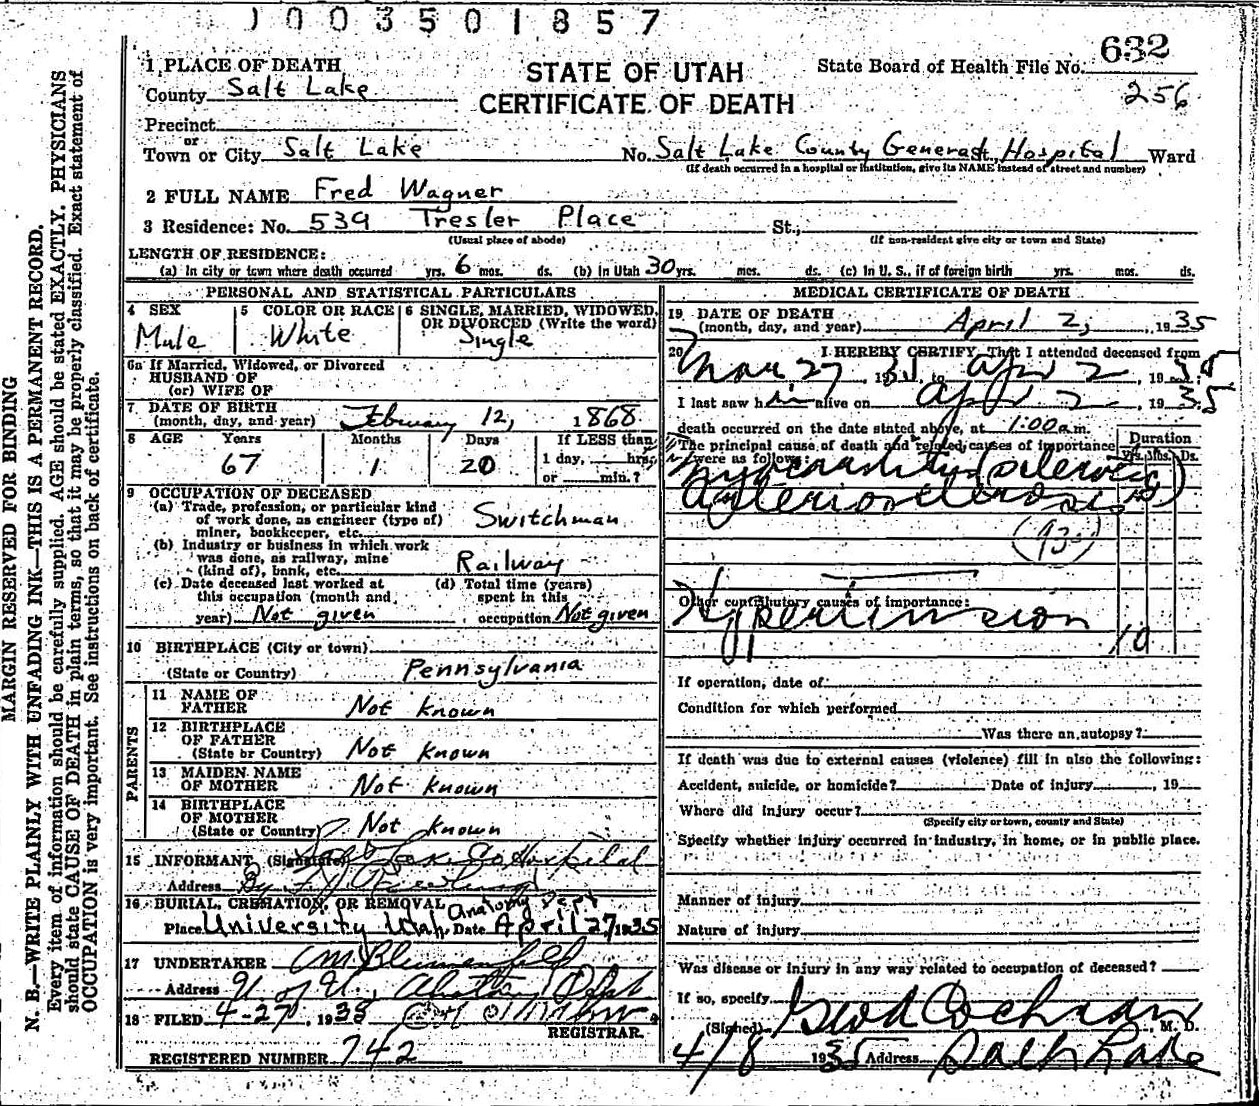 1003501857
632
256
1 PLACE OF DEATH
STATE OF UTAH
CERTIFICATE OF DEATH
State Board of Health File No.
County Salt Lake
Precinct
or
Town or City Salt Lake No. Salt Lake County General Hospital Ward
(If death occurred in a hospital or institution, give its NAME instead of street and number)
2 FULL NAME Fred Wagner
3 Residence: No. 539 Tresler Place St.,
(Usual place of abode) (If non-resident give city or town and State)
LENGTH OF RESIDENCE:
(a) In city or town where death occurred yrs. 6 mos. ds. (b) In Utah 30 yrs. mos. ds. (c) In U. S., if of foreign birth yrs. mos. ds.
PERSONAL AND STATISTICAL PARTICULARS
4 SEX 5 COLOR OR RACE 6 SINGLE, MARRIED, WIDOWED, OR DIVORCED (Write the word)
Male White Single
6a If Married, Widowed, or Divorced
HUSBAND OF
(or) WIFE OF
7 DATE OF BIRTH
(month, day, and year) February 12, 1868
8 AGE Years Months Days If LESS than
67 1 20 1 day, hrs.
or min.?
9 OCCUPATION OF DECEASED
(a) Trade, profession, or particular kind
of work done, as engineer (type of)
miner, bookkeeper, etc. Switchman
(b) Industry or business in which work
was done, as railway, mine
(kind of), bank, etc. Railway
(c) Date deceased last worked at
this occupation (month and
year) Not given
(d) Total time (years)
spent in this
occupation Not given
10 BIRTHPLACE (City or town)
(State or Country) Pennsylvania
PARENTS
11 NAME OF
FATHER Not known
12 BIRTHPLACE
OF FATHER
(State or Country) Not known
13 MAIDEN NAME
OF MOTHER Not known
14 BIRTHPLACE
OF MOTHER
(State or Country) Not known
15 INFORMANT (Signature) Salt Lake Co Hospital
Address By
16 BURIAL, CREMATION, OR REMOVAL Anatomy Dept
Place University Utah, Date April 27 1935
17 UNDERTAKER
Address U of U,
18 FILED 4-27, 1935
REGISTRAR.
REGISTERED NUMBER 742
MEDICAL CERTIFICATE OF DEATH
19 DATE OF DEATH
(month, day, and year) April 2, 1935
20 I HEREBY CERTIFY, That I attended deceased from
Mar 27 1935, to Apr 2, 1935
I last saw him alive on Apr 2, 1935
death occurred on the date stated above, at 1:00 a.m.
The principal cause of death and related causes of importance
were as follows:
Duration
Yrs. Mos. Ds.
Myocarditis
Arteriosclerosis
Other contributory causes of importance:
Hypertension 10
If operation, date of
Condition for which performed
Was there an autopsy?
If death was due to external causes (violence) fill in also the following:
Accident, suicide, or homicide? Date of injury, 19
Where did injury occur?
(Specify city or town, county and State)
Specify whether injury occurred in industry, in home, or in public place.
Manner of injury
Nature of injury
Was disease or injury in any way related to occupation of deceased?
If so, specify
(Signed) Cochran, M. D.
4/8 1935 Address Salt Lake
MARGIN RESERVED FOR BINDING
N. B.—WRITE PLAINLY WITH UNFADING INK—THIS IS A PERMANENT RECORD.
Every item of information should be carefully supplied. AGE should be stated EXACTLY. PHYSICIANS
should state CAUSE OF DEATH in plain terms, so that it may be properly classified. Exact statement of
OCCUPATION is very important. See instructions on back of certificate.